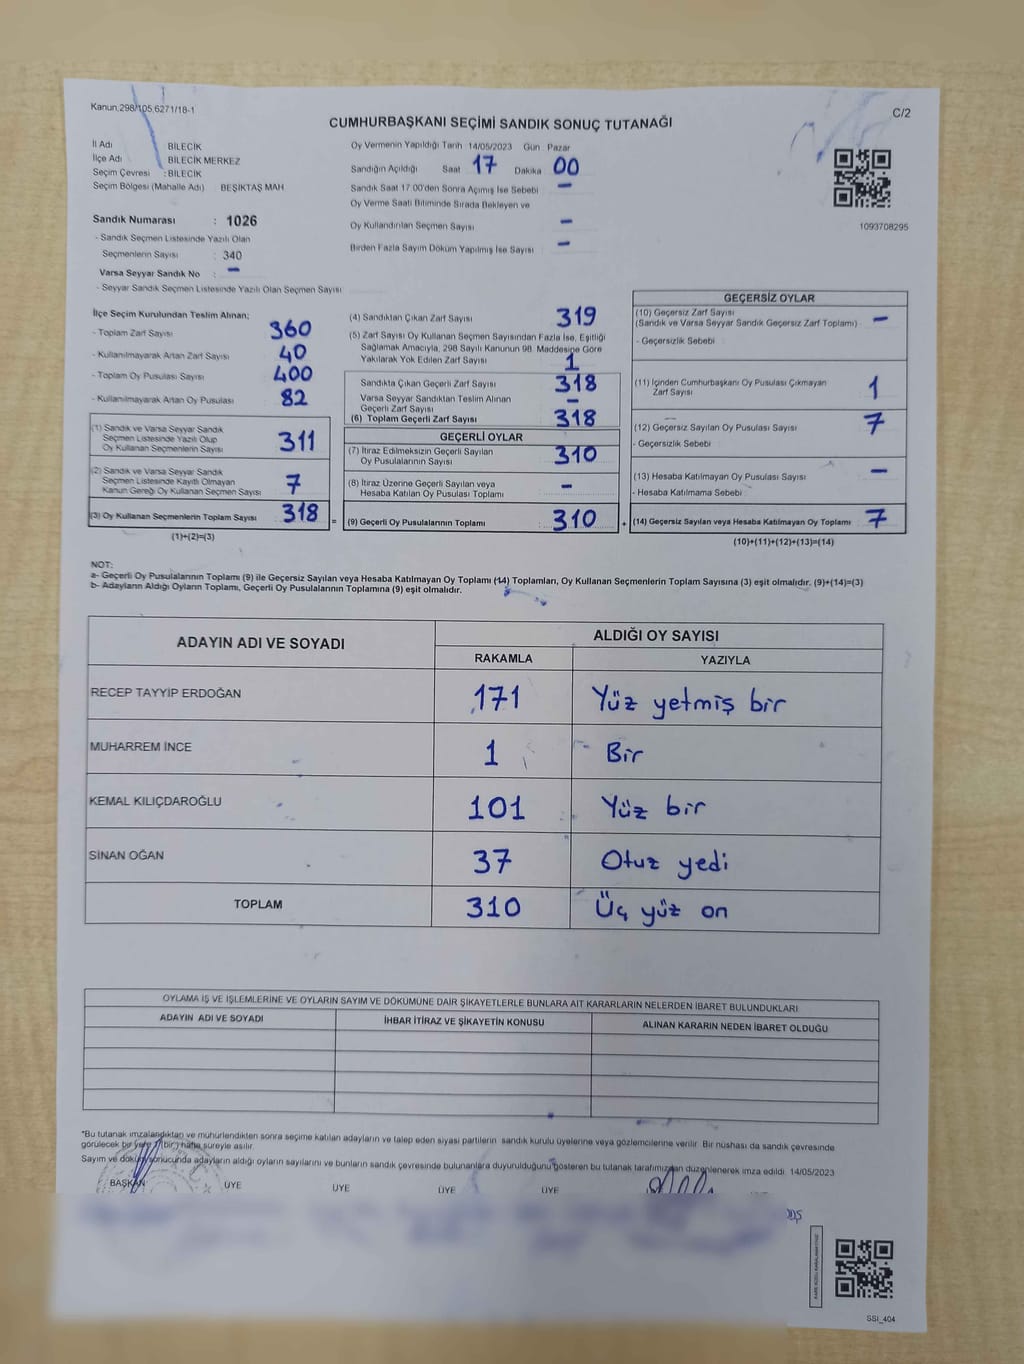 Kanun.298/105,6271/18-1
C/2
CUMHURBAŞKANI SEÇİMİ SANDIK SONUÇ TUTANAĞI
İl Adı BİLECİK
İlçe Adı BİLECİK MERKEZ
Seçim Çevresi : BİLECİK
Seçim Bölgesi (Mahalle Adı) BEŞİKTAŞ MAH
Sandık Numarası : 1026
- Sandık Seçmen Listesinde Yazılı Olan
Seçmenlerin Sayısı : 340
Varsa Seyyar Sandık No : -
- Seyyar Sandık Seçmen Listesinde Yazılı Olan Seçmen Sayısı
Oy Vermenin Yapıldığı Tarih 14/05/2023 Gün Pazar
Sandığın Açıldığı Saat 17 Dakika 00
Sandık Saat 17.00'den Sonra Açımış İse Sebebi -
Oy Verme Saati Bitiminde Sırada Bekleyen ve
Oy Kullandırılan Seçmen Sayısı -
Birden Fazla Sayım Döküm Yapılmış İse Sayısı -
1093708295
İlçe Seçim Kurulundan Teslim Alınan;
- Toplam Zarf Sayısı 360
- Kullanılmayarak Artan Zarf Sayısı 40
- Toplam Oy Pusulası Sayısı 400
- Kullanılmayarak Artan Oy Pusulası 82
(1) Sandık ve Varsa Seyyar Sandık
Seçmen Listesinde Yazılı Olup
Oy Kullanan Seçmenlerin Sayısı 311
(2) Sandık ve Varsa Seyyar Sandık
Seçmen Listesinde Kayıtlı Olmayan
Kanun Gereği Oy Kullanan Seçmen Sayısı 7
(3) Oy Kullanan Seçmenlerin Toplam Sayısı 318
(1)+(2)=(3)
(4) Sandıktan Çıkan Zarf Sayısı 319
(5) Zarf Sayısı Oy Kullanan Seçmen Sayısından Fazla İse, Eşitliği
Sağlamak Amacıyla, 298 Sayılı Kanunun 98. Maddesine Göre
Yakılarak Yok Edilen Zarf Sayısı 1
Sandıkta Çıkan Geçerli Zarf Sayısı 318
Varsa Seyyar Sandıktan Teslim Alınan
Geçerli Zarf Sayısı -
(6) Toplam Geçerli Zarf Sayısı 318
GEÇERLİ OYLAR
(7) İtiraz Edilmeksizin Geçerli Sayılan
Oy Pusulalarının Sayısı 310
(8) İtiraz Üzerine Geçerli Sayılan veya
Hesaba Katılan Oy Pusulası Toplamı -
= (9) Geçerli Oy Pusulalarının Toplamı 310 +
GEÇERSİZ OYLAR
(10) Geçersiz Zarf Sayısı
(Sandık ve Varsa Seyyar Sandık Geçersiz Zarf Toplamı) -
- Geçersizlik Sebebi :
(11) İçinden Cumhurbaşkanı Oy Pusulası Çıkmayan
Zarf Sayısı 1
(12) Geçersiz Sayılan Oy Pusulası Sayısı : 7
- Geçersizlik Sebebi :
(13) Hesaba Katılmayan Oy Pusulası Sayısı : -
- Hesaba Katılmama Sebebi :
(14) Geçersiz Sayılan veya Hesaba Katılmayan Oy Toplamı 7
(10)+(11)+(12)+(13)=(14)
NOT:
a- Geçerli Oy Pusulalarının Toplamı (9) ile Geçersiz Sayılan veya Hesaba Katılmayan Oy Toplamı (14) Toplamları, Oy Kullanan Seçmenlerin Toplam Sayısına (3) eşit olmalıdır. (9)+(14)=(3)
b- Adayların Aldığı Oyların Toplamı, Geçerli Oy Pusulalarının Toplamına (9) eşit olmalıdır.
ADAYIN ADI VE SOYADI
ALDIĞI OY SAYISI
RAKAMLA YAZIYLA
RECEP TAYYİP ERDOĞAN 171 Yüz yetmiş bir
MUHARREM İNCE 1 Bir
KEMAL KILIÇDAROĞLU 101 Yüz bir
SİNAN OĞAN 37 Otuz yedi
TOPLAM 310 Üç yüz on
OYLAMA İŞ VE İŞLEMLERİNE VE OYLARIN SAYIM VE DÖKÜMÜNE DAİR ŞİKAYETLERLE BUNLARA AİT KARARLARIN NELERDEN İBARET BULUNDUKLARI
ADAYIN ADI VE SOYADI İHBAR İTİRAZ VE ŞİKAYETİN KONUSU ALINAN KARARIN NEDEN İBARET OLDUĞU
*Bu tutanak imzalandıktan ve mühürlendikten sonra seçime katılan adayların ve talep eden siyasi partilerin sandık kurulu üyelerine veya gözlemcilerine verilir. Bir nüshası da sandık çevresinde
görülecek bir yere 7 (bir) hafta süreyle asılır.
Sayım ve döküm sonucunda adayların aldığı oyların sayılarını ve bunların sandık çevresinde bulunanlara duyurulduğunu gösteren bu tutanak tarafımızdan düzenlenerek imza edildi. 14/05/2023
BAŞKAN ÜYE ÜYE ÜYE ÜYE
SSI_404